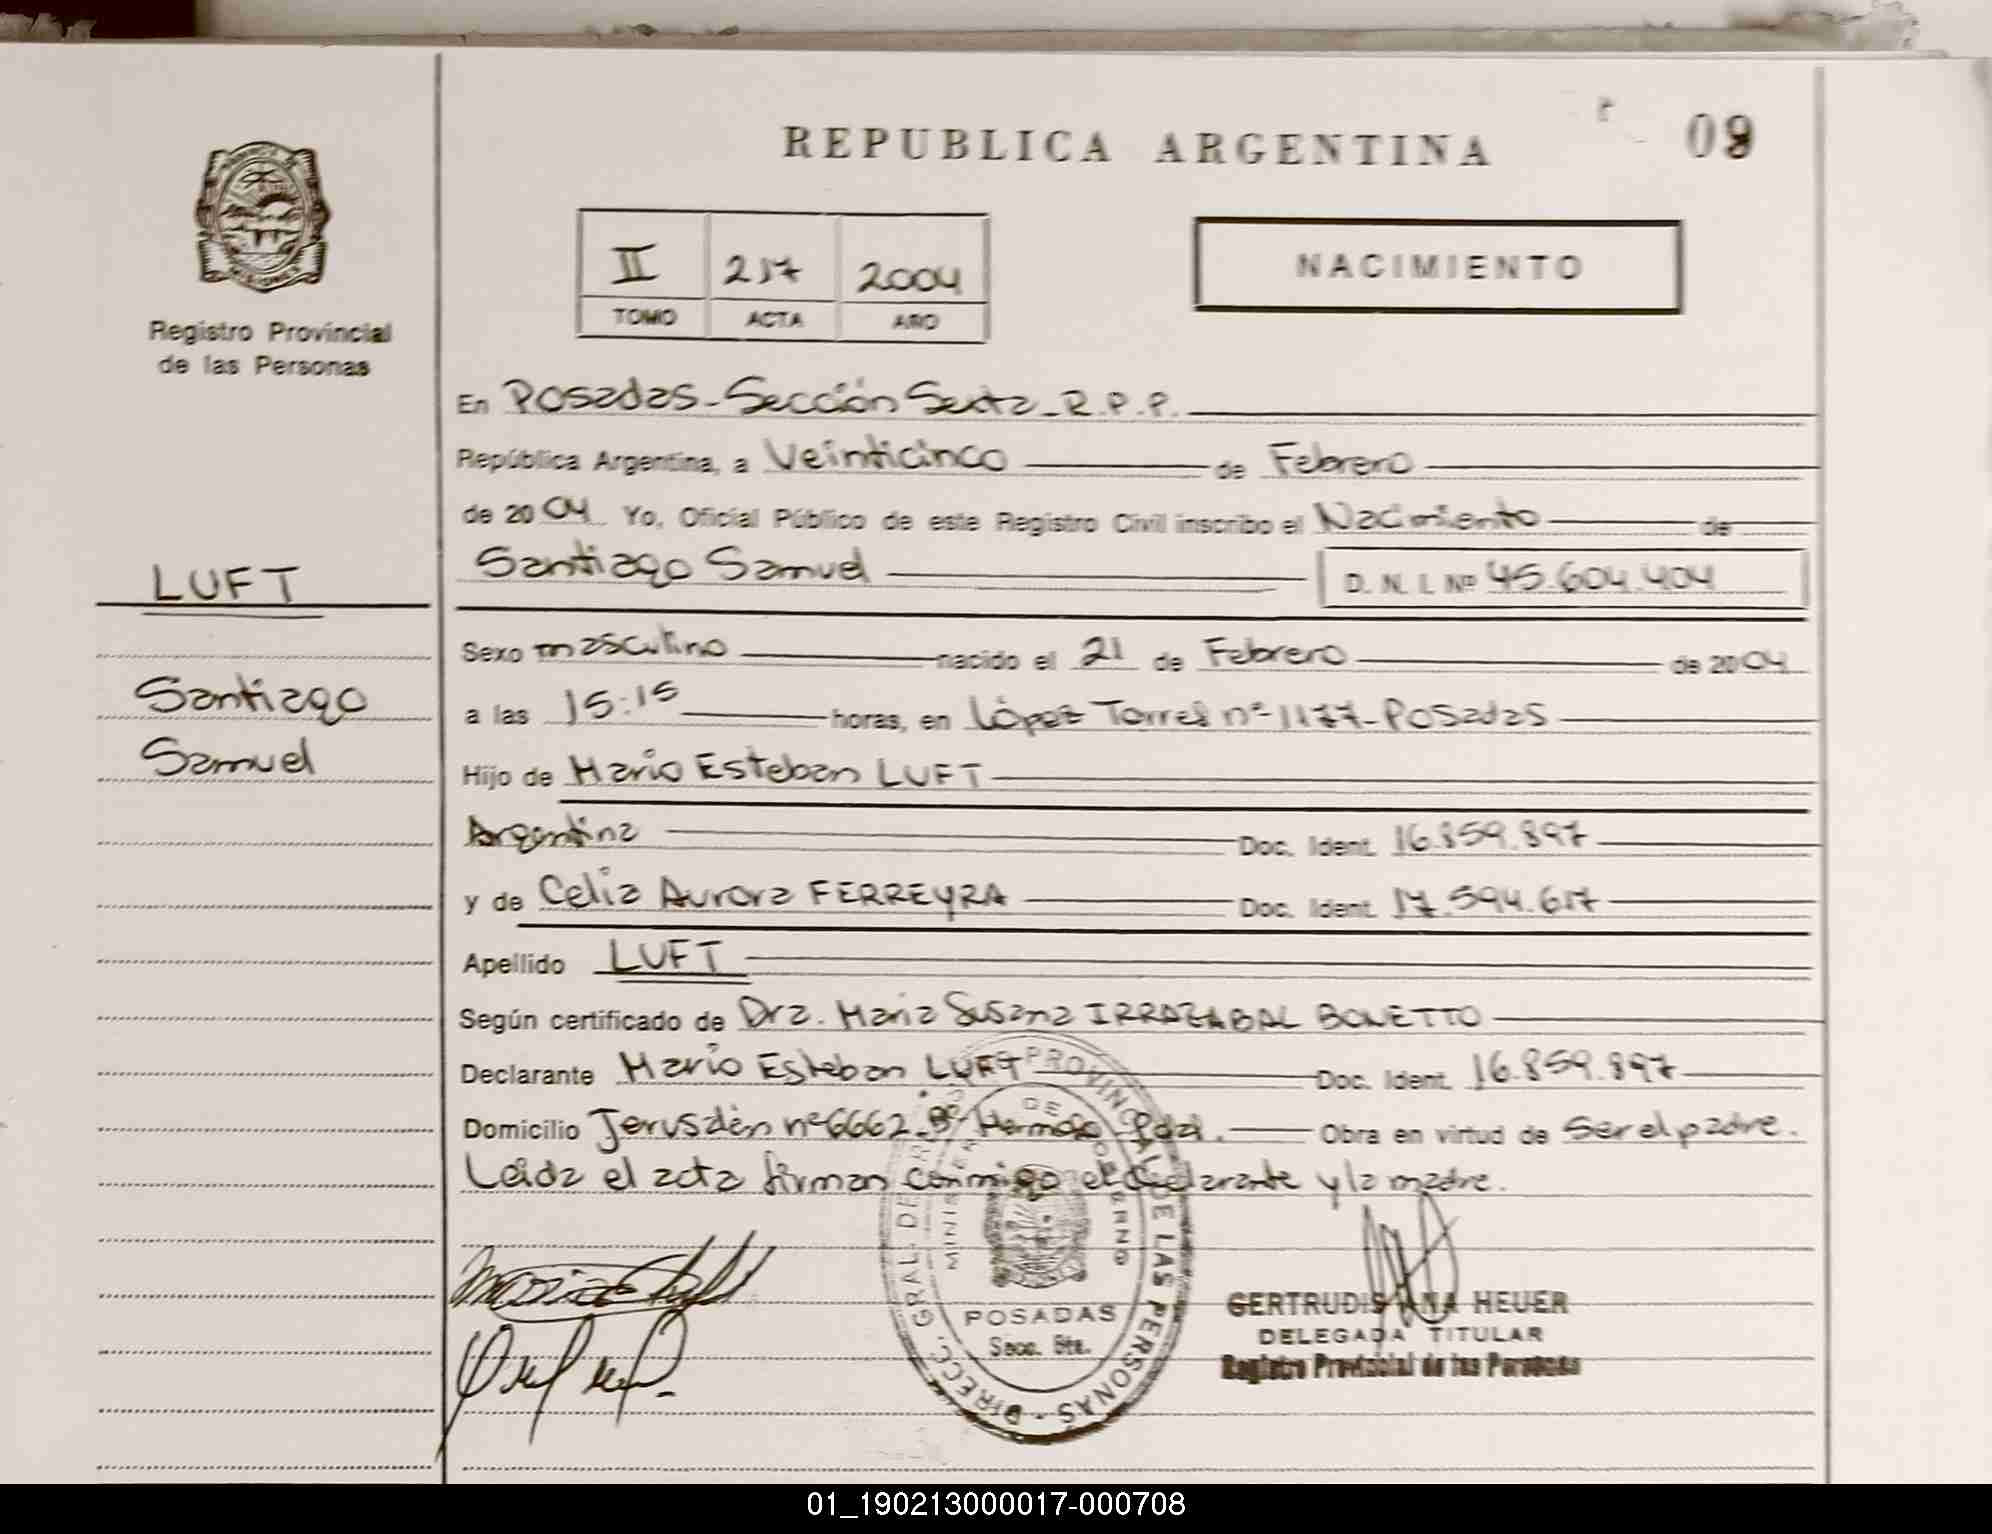 REPUBLICA ARGENTINA
09
Registro Provincial
de las Personas
II 217 2004
TOMO ACTA AÑO
NACIMIENTO
En Posadas - Sección Sexta - R.P.P.
República Argentina, a Veinticinco de Febrero
de 2004 Yo, Oficial Público de este Registro Civil inscribo el Nacimiento de
Santiago Samuel D. N. I. Nº 45.604.404
LUFT
Santiago
Samuel
Sexo masculino nacido el 21 de Febrero de 2004
a las 15:15 horas, en López Torres nº 1177 - Posadas
Hijo de Mario Esteban LUFT
Argentina Doc. Ident. 16.859.897
y de Celia Aurora FERREYRA Doc. Ident. 17.594.617
Apellido LUFT
Según certificado de Dra. Maria Susana IRRAZABAL BONETTO
Declarante Mario Esteban LUFT Doc. Ident. 16.859.897
Domicilio Jerusalén nº 6662 Bº Hermoso Obra en virtud de Ser el padre.
Leida el acta firman conmigo el declarante y la madre.
DIRECC. GRAL. DE PROVINCIAL DE LAS PERSONAS
MINISTERIO DE GOBIERNO
POSADAS
Secc. 6ta.
GERTRUDIS ANA HEUER
DELEGADA TITULAR
Registro Provincial de las Personas
01_190213000017-000708